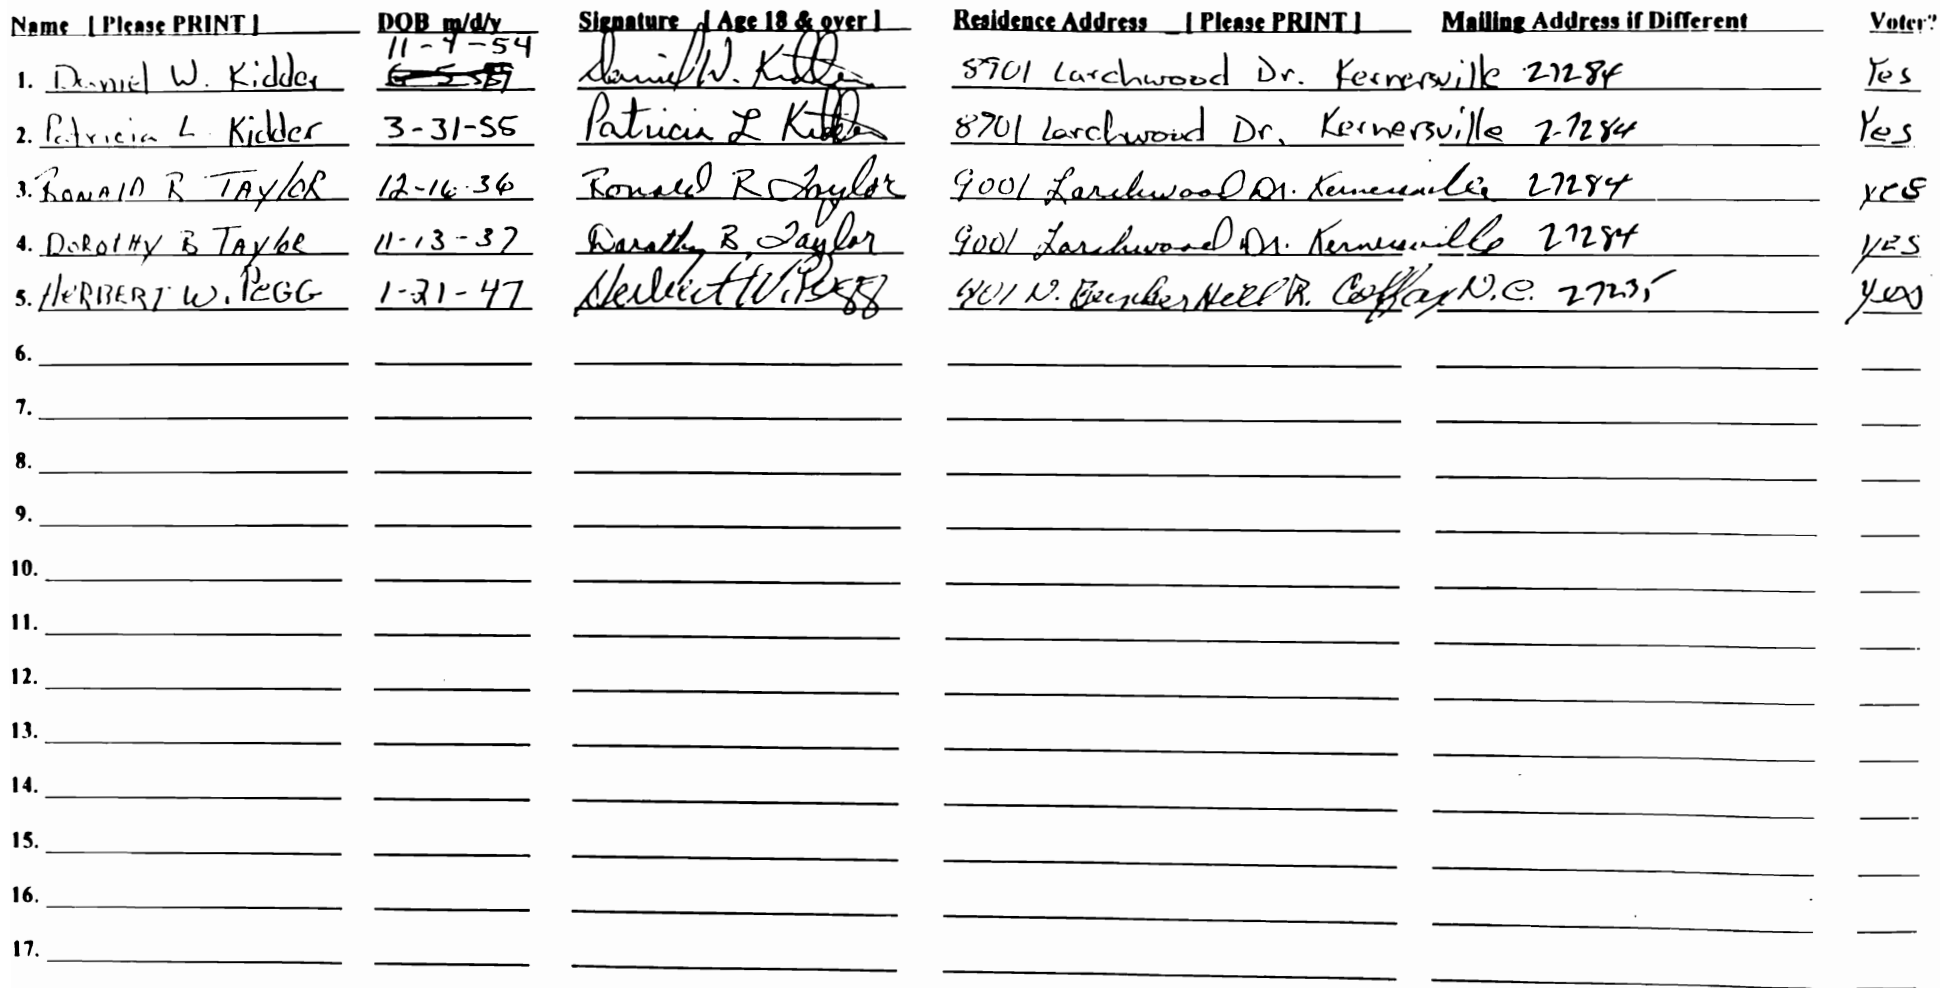 Name [ Please PRINT ] DOB m/d/y Signature [ Age 18 & over ] Residence Address [ Please PRINT ] Mailing Address if Different Voter?
11-9-54
1. Daniel W. Kidder Daniel W. Kidder 8901 Larchwood Dr. Kernersville 27284 Yes
2. Patricia L Kidder 3-31-55 Patricia L Kidder 8901 Larchwood Dr. Kernersville 27284 Yes
3. RONALD R TAYLOR 12-16-36 Ronald R Taylor 9001 Larchwood Dr. Kernersville 27284 yes
4. DOROTHY B TAYLOR 11-13-37 Dorothy B. Taylor 9001 Larchwood Dr. Kernersville 27284 YES
5. HERBERT W. PEGG 1-21-47 Herbert W. Pegg 401 N. Bunker Hill R. Colfax N.C. 27235 yes
6.
7.
8.
9.
10.
11.
12.
13.
14.
15.
16.
17.